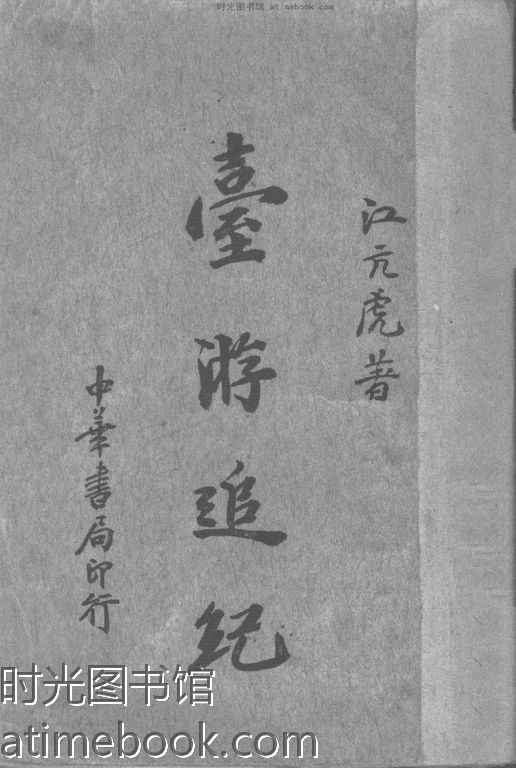 时光图书馆 at mebook.com
江亢虎著
臺游追纪
中華書局印行
时光图书馆
atimebook.com